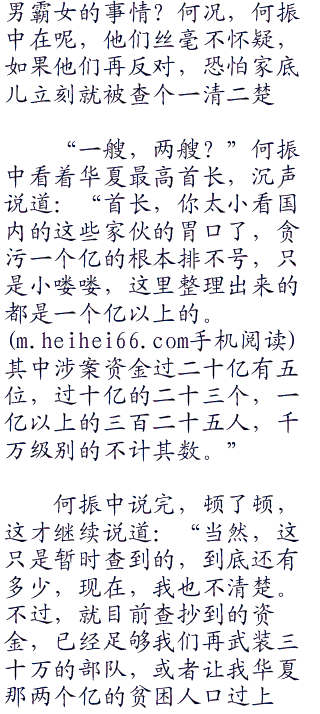 男霸女的事情？何况，何振
中在呢，他们丝毫不怀疑，
如果他们再反对，恐怕家底
儿立刻就被查个一清二楚
“一艘，两艘？”何振
中看着华夏最高首长，沉声
说道：“首长，你太小看国
内的这些家伙的胃口了，贪
污一个亿的根本排不号，只
是小喽喽，这里整理出来的
都是一个亿以上的。
(m.heihei66.com手机阅读)
其中涉案资金过二十亿有五
位，过十亿的二十三个，一
亿以上的三百二十五人，千
万级别的不计其数。”
何振中说完，顿了顿，
这才继续说道：“当然，这
只是暂时查到的，到底还有
多少，现在，我也不清楚。
不过，就目前查抄到的资
金，已经足够我们再武装三
十万的部队，或者让我华夏
那两个亿的贫困人口过上